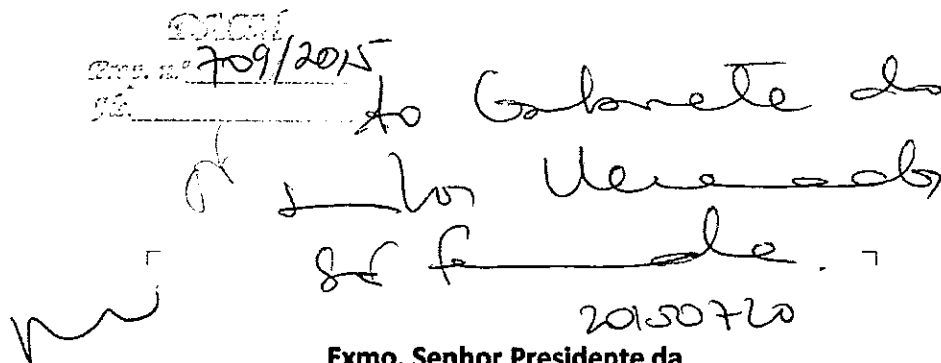 Prop. n.º 709/2015
Ao Gabinete do
Senhor Vereador
Sá Fernandes.
20150720
Exmo. Senhor Presidente da